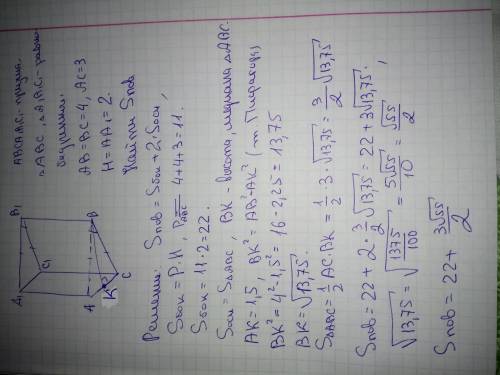 ABCA₁B₁C₁ - призма.
△ABC, △A₁B₁C₁ - равно-
бедренные.
AB=BC=4, AC=3
H=AA₁=2.
Найти Sпов
A₁
B₁
C₁
A
B
K
C
Решение: Sпов = Sбок + 2·Sосн,
Sбок = P·H, P_ABC = 4+4+3=11.
Sбок = 11·2=22.
Sосн = S△ABC, BK - высота, медиана △ABC.
AK=1,5, BK²=AB²-AK² (т. Пифагора)
BK²=4²-1,5²=16-2,25=13,75
BK=√13,75.
S△ABC=½AC·BK=½·3·√13,75=3/2√13,75
Sпов=22+2·3/2√13,75=22+3√13,75.
√13,75=√(1375/100)=5√55/10=√55/2,
Sпов=22+3√55/2